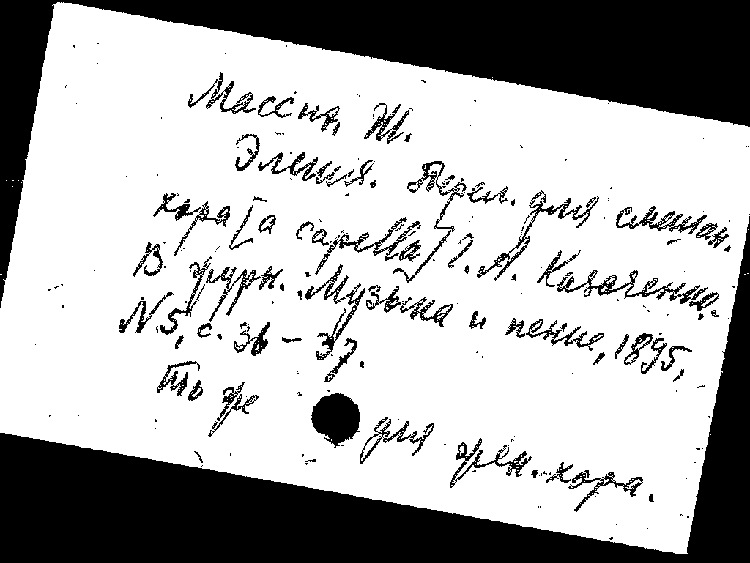 Массна, Ж.
Элегия. Перел. для смешан.
хора [a capella] Г. А. Казаченко.
В журн.: Музыка и пение, 1895,
N 5, с. 36 – 37.
То же для жен. хора.